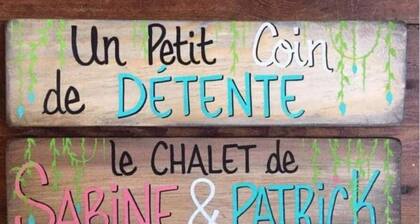 Un Petit Coin
de DÉTENTE
le CHALET de
SABINE & PATRICK